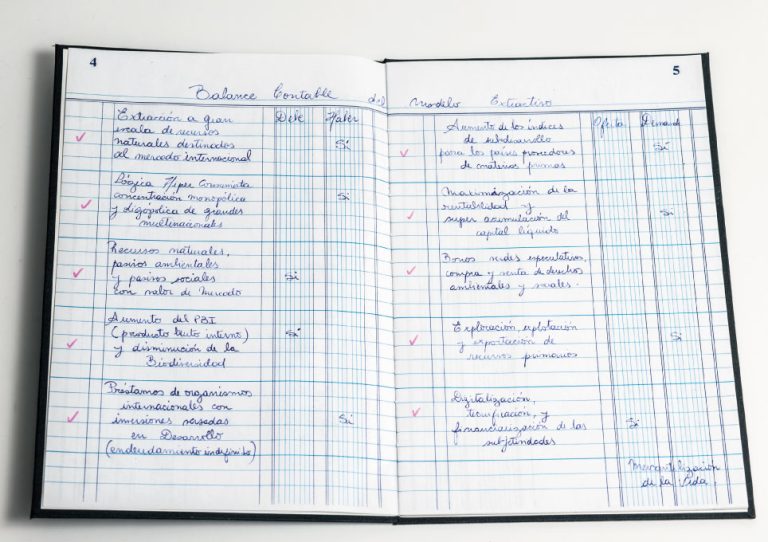 4
Balance Contable del
Debe Haber
Extracción a gran
escala de recursos
naturales destinados
al mercado internacional
Si
Lógica Hiper Consumista
concentración monopólica
y oligopólica de grandes
multinacionales
Si
Recursos naturales,
pasivos ambientales
y pasivos sociales
con valor de mercado
Si
Aumento del PBI
(producto bruto interno)
y disminución de la
Biodiversidad
Si
Préstamos de organismos
internacionales con
inversiones sesgadas
en Desarrollo
(endeudamiento indefinido)
Si
5
Modelo Extractivo
Oferta Demanda
Aumento de los índices
de subdesarrollo
para los países proveedores
de materias primas
Si
Maximización de la
rentabilidad y
super acumulación del
capital líquido
Si
Bonos verdes especulativos,
compra y venta de derechos
ambientales y sociales.
Exploración, explotación
y exportación de
recursos primarios
Si
Digitalización,
tecnificación, y
financialización de las
subjetividades
Si
Mercantilización
de la Vida